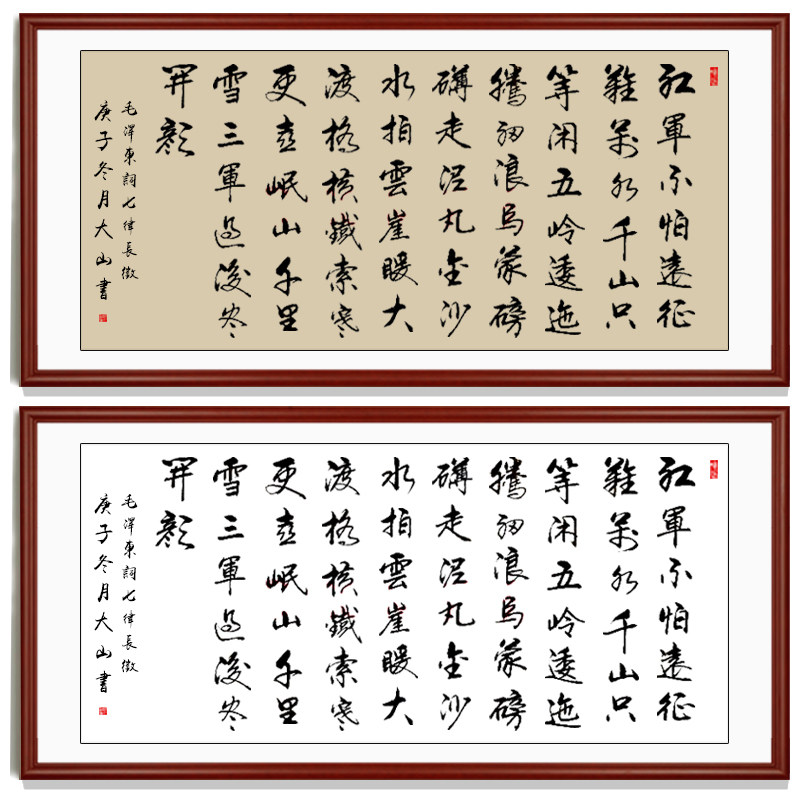 红軍不怕遠征
難萬水千山只
等闲五岭逶迤
騰细浪烏蒙磅
礴走泥丸金沙
水拍雲崖暖大
渡橋横鐵索寒
更喜岷山千里
雪三軍過後尽
開顔
毛澤東詞七律長徵
庚子冬月大山書
红軍不怕遠征
難萬水千山只
等闲五岭逶迤
騰细浪烏蒙磅
礴走泥丸金沙
水拍雲崖暖大
渡橋横鐵索寒
更喜岷山千里
雪三軍過後尽
開顔
毛澤東詞七律長徵
庚子冬月大山書